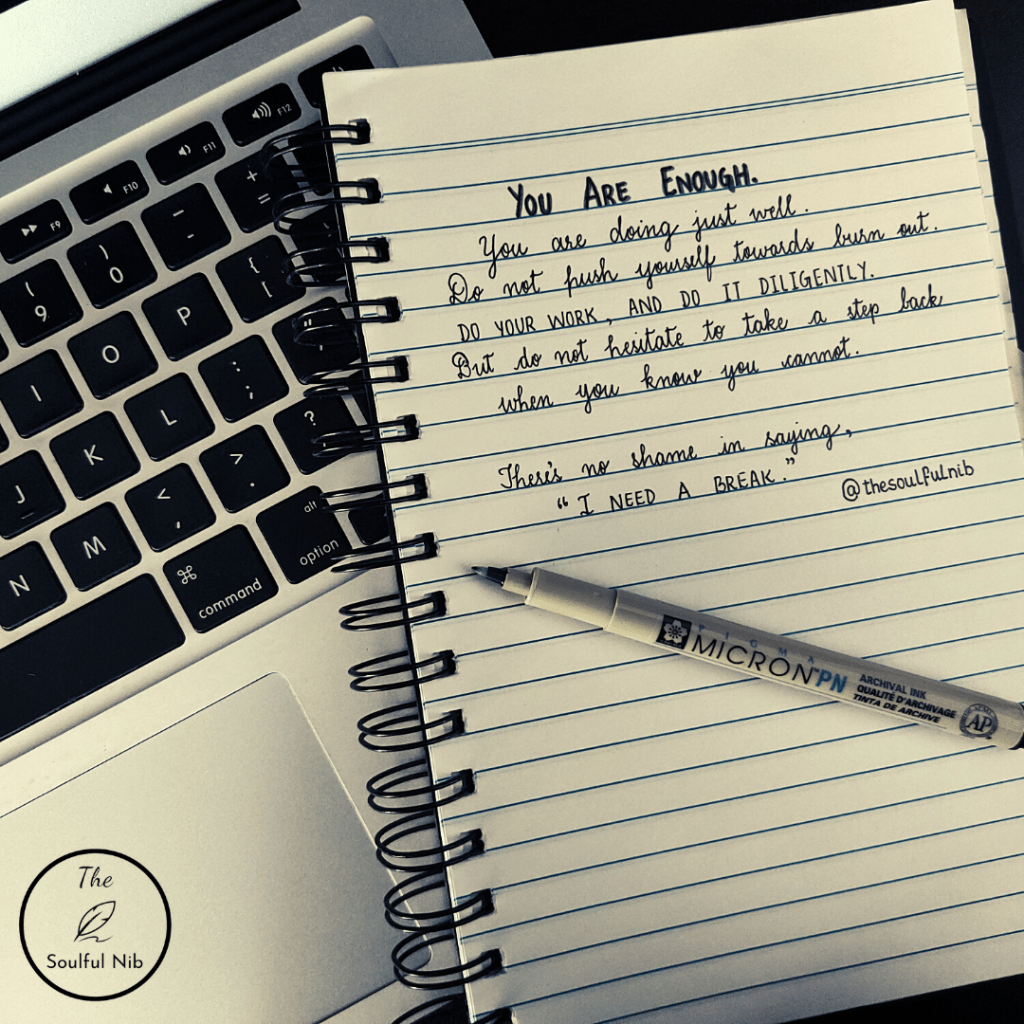 YOU ARE ENOUGH.
You are doing just well.
Do not push yourself towards burn out.
DO YOUR WORK, AND DO IT DILIGENTLY.
But do not hesitate to take a step back
when you know you cannot.
There's no shame in saying,
“I NEED A BREAK.”
@thesoulfulnib
PIGMA
MICRON PN
ARCHIVAL INK
QUALITÉ D'ARCHIVAGE
TINTA DE ARCHIVE
AP
F12
F11
F10
F9
+
=
_
-
)
0
(
9
{
[
P
O
I
:
;
L
K
J
?
>
.
<
,
M
N
alt
option
⌘
command
The
Soulful Nib